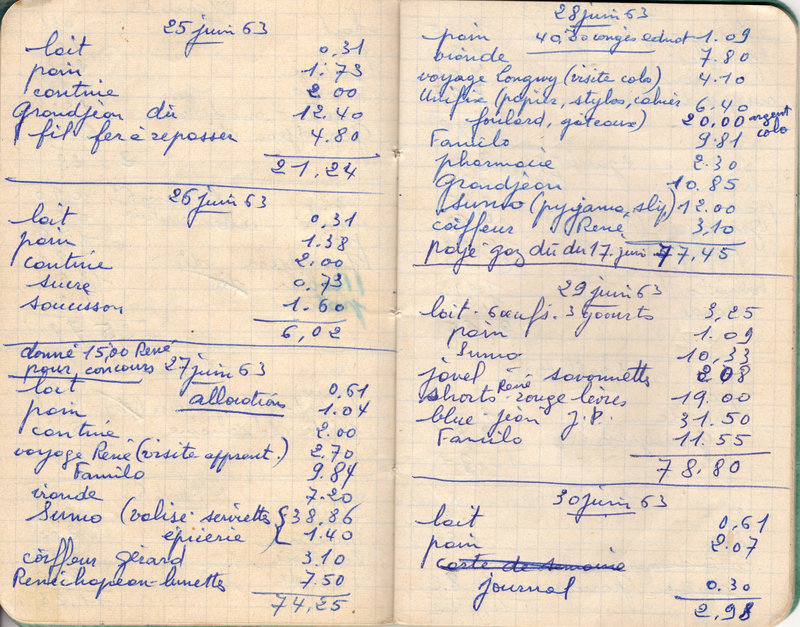 25 juin 63
lait 0,31
pain 1.73
cantine 2.00
Grandjean dû 12.40
fil fer à repasser 4.80
21,24
26 juin 63
lait 0,31
pain 1.38
cantine 2.00
sucre 0.73
saucisson 1.60
6,02
donné 15,00 René
pour concours 27 juin 63
lait allocations 0,61
pain 1.04
cantine 2.00
voyage René (visite apprent.) 2,70
Familo 9.84
viande 7.20
Sumo (valise serviettes 38,86
épicerie 1.40
coiffeur gérard 3.10
René chapeau-lunettes 7.50
74,25
28 juin 63
pain 1.09
viande 7.80
voyage longwy (visite colo) 4.10
Unifix (papier, stylos, cahier 6.40
foulard, gâteaux) 20,00 argent colo
Familo 9.81
pharmacie 2.30
Grandjean 10.85
Sumo (pyjama, slip) 12.00
coiffeur René 3,10
payé gaz dû du 17. juin 77,45
29 juin 63
lait. 6 oeufs. 3 yaourts 3,25
pain 1.09
Sumo 10,33
javel savonnette 2,08
shorts René rouge lèvres 19.00
blue jean J.P. 31.50
Familo 11.55
78.80
30 juin 63
lait 0,61
pain 2.07
carte de semaine
journal 0.30
2,98